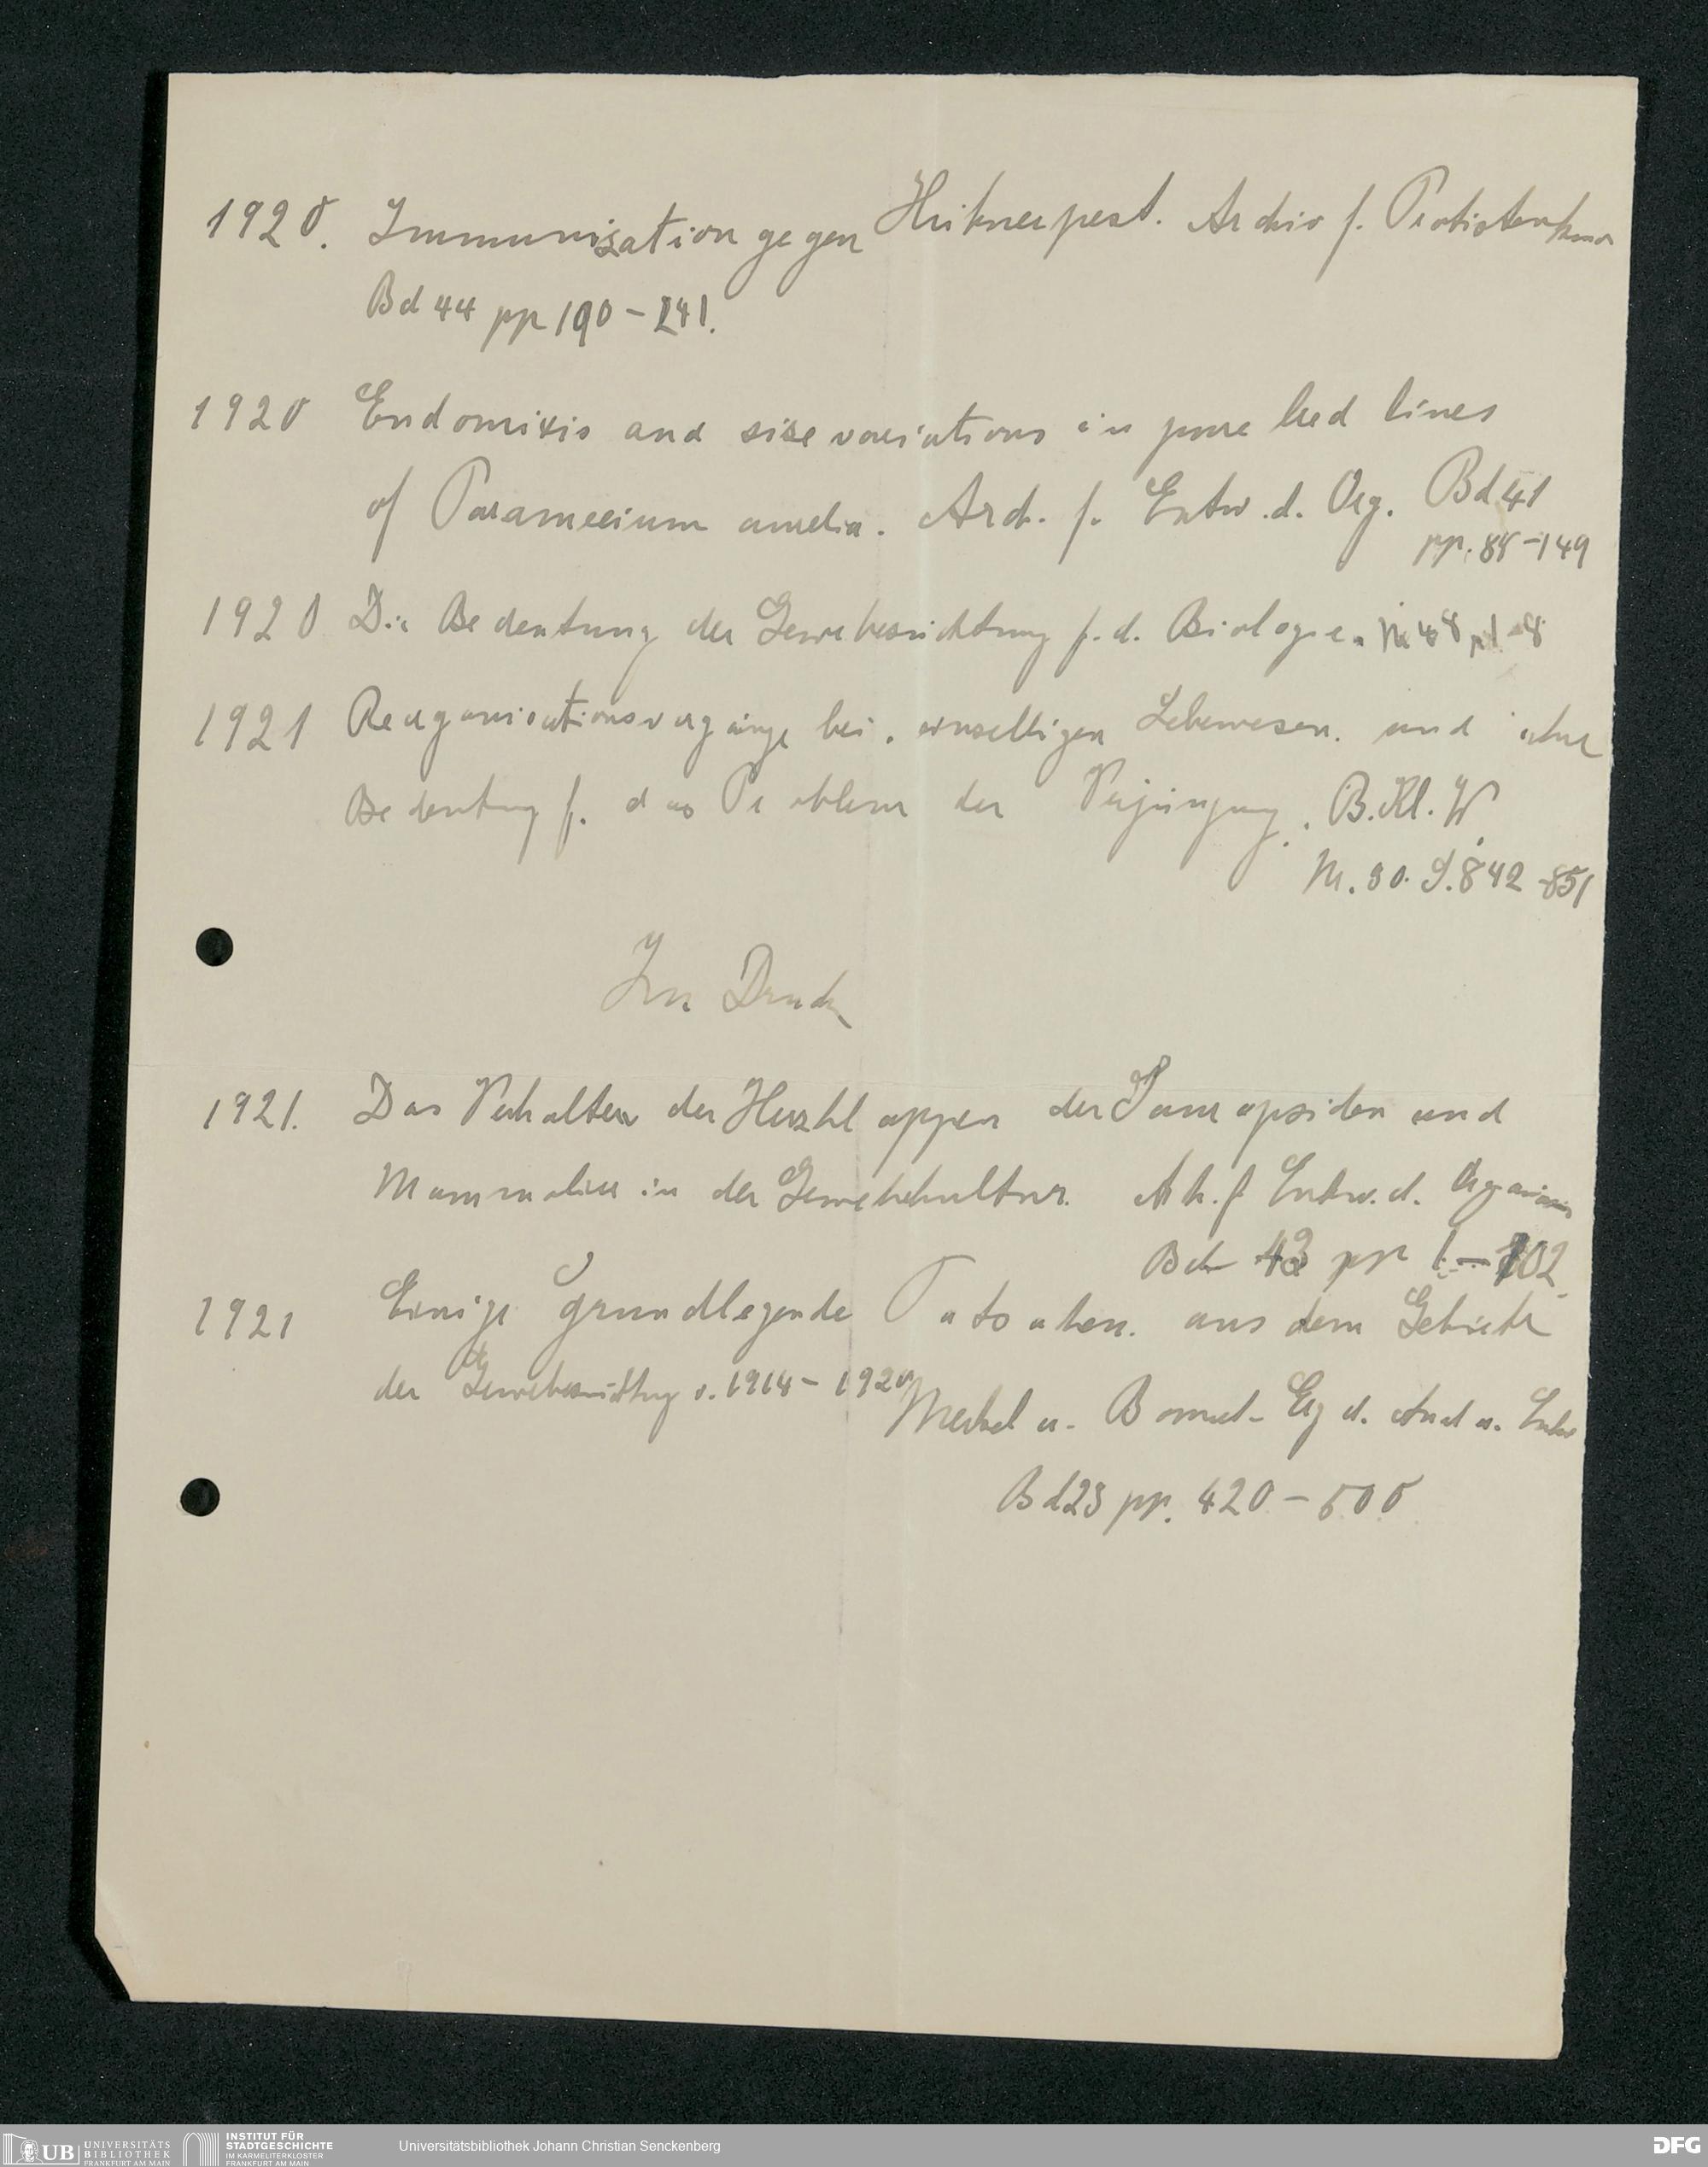 1920. Immunisation gegen Hühnerpest. Archiv f. Protistenkunde
Bd 44 pp 190-241.
1920 Endomixis and size variations in pure bred lines
of Paramecium aurelia. Arch. f. Entw. d. Org. Bd 41
pp. 88-149
1920 Die Bedeutung der Gewebezüchtung f. d. Biologie.
1921 Reorganisationsvorgänge bei einzelligen Lebewesen. und ihre
Bedeutung f. das Problem der Verjüngung. B. Kl. W.
Nr. 30. S. 842-851
Im Druck
1921. Das Verhalten der Herzklappen der Sauropsiden und
Mammalier in der Gewebekultur. Arh. f. Entw. d. Organismen
Bd 43 pp 1-102
1921 Einige grundlegende Tatsachen. aus dem Gebiete
der Gewebezüchtung v. 1914-1920 Merkel u. Bonnet- Erg d. Anat u. Entw
Bd 23 pp. 420-500
UB UNIVERSITÄTS
BIBLIOTHEK
FRANKFURT AM MAIN
INSTITUT FÜR
STADTGESCHICHTE
IM KARMELITERKLOSTER
FRANKFURT AM MAIN
Universitätsbibliothek Johann Christian Senckenberg
DFG